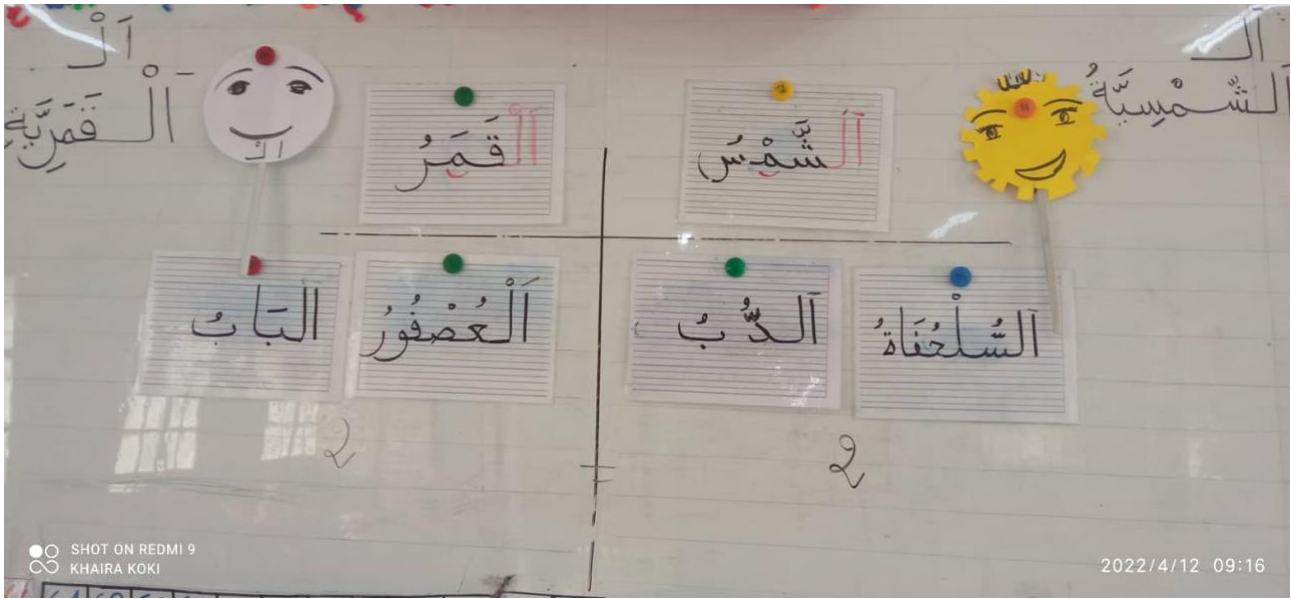 اَلـ
اَلشَّمْسِيَّةُ
اَلْـ
اَلْقَمَرِيَّةِ
اَلشَّمْسُ
اَلْقَمَرُ
الْـ
اَلسُّلْحُفَاةُ
اَلدُّبُّ
اَلْعُصْفُورُ
الْبَابُ
2
2
SHOT ON REDMI 9
KHAIRA KOKI
2022/4/12 09:16